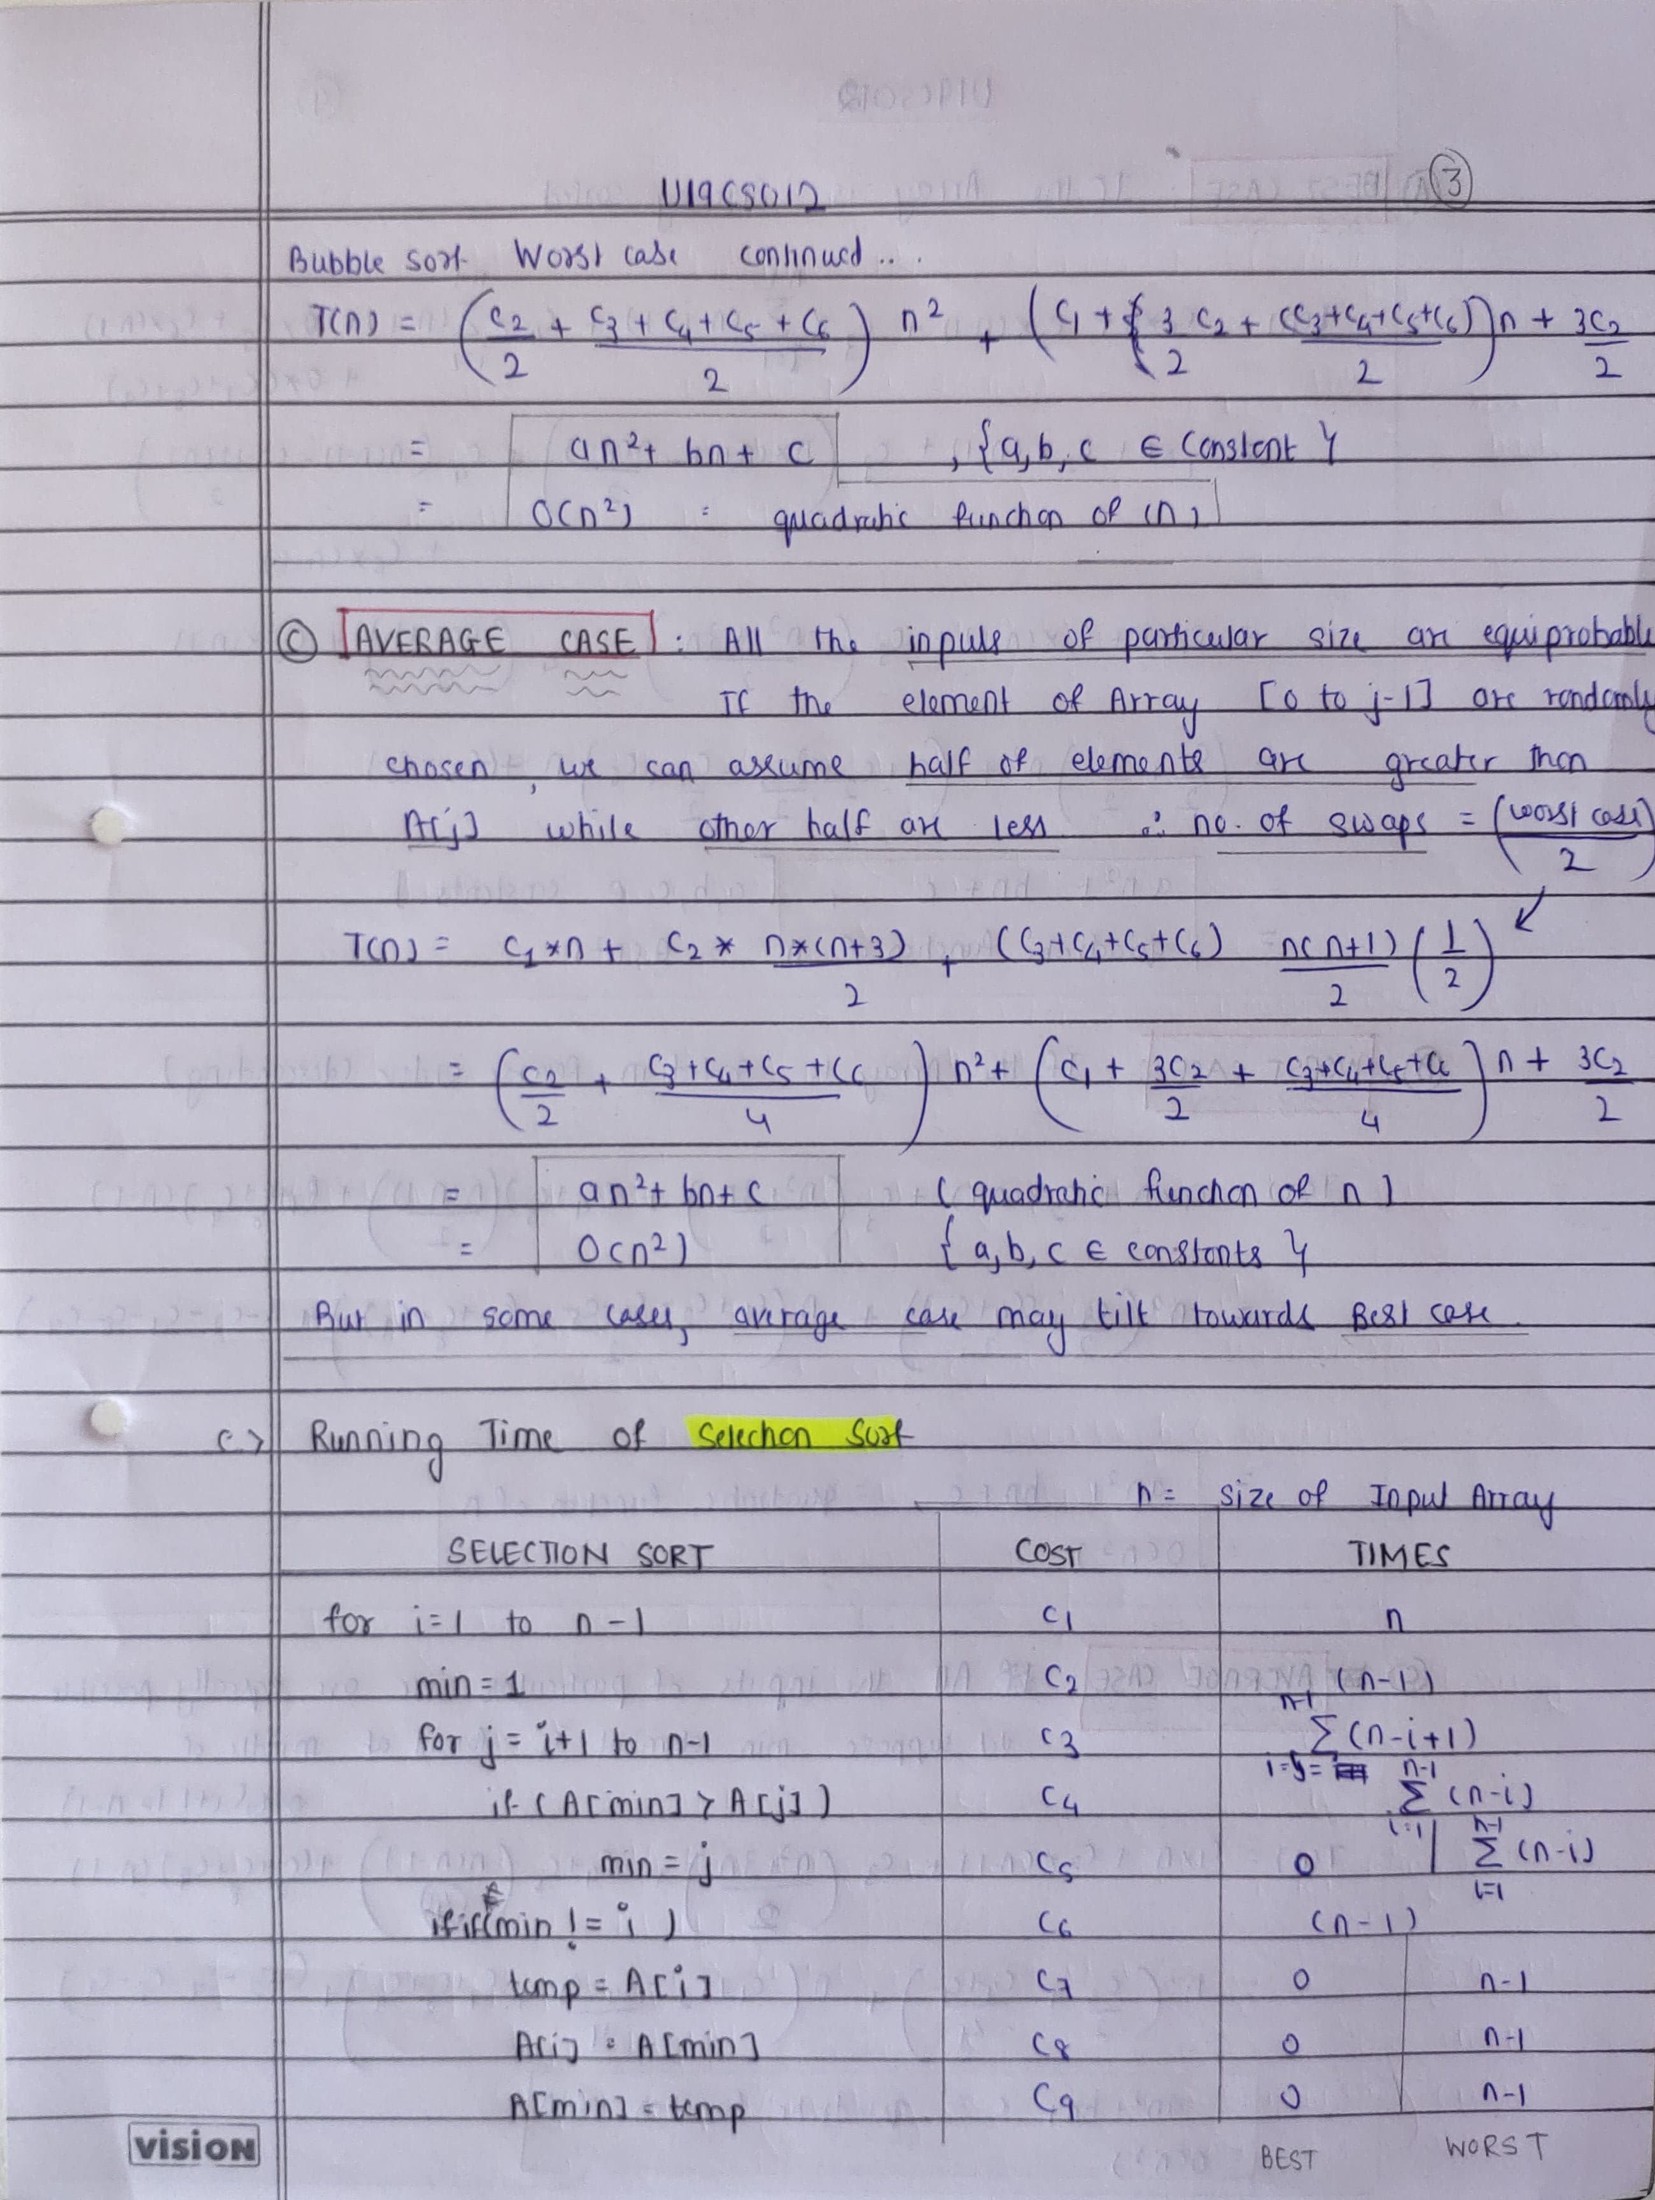 U19CS012
3
Bubble sort Worst case continued...
T(n) = (C2/2 + (C3+C4+C5+C6)/2) n² + (C1 + 3/2 C2 + (C3+C4+C5+C6)/2) n + 3C2/2
= an²+ bn + c , {a,b,c ∈ Constant }
= O(n²) = quadratic function of (n)
(C) AVERAGE CASE : All the inputs of particular size are equiprobable
If the element of Array [0 to j-1] are randomly
chosen, we can assume half of elements are greater than
A[j] while other half are less ∴ no. of swaps = (worst case)/2
T(n) = C1*n + C2 * n*(n+3)/2 + (C3+C4+C5+C6) n(n+1)/2 (1/2)
= (C2/2 + (C3+C4+C5+C6)/4) n² + (C1 + 3C2/2 + (C3+C4+C5+C6)/4) n + 3C2/2
= an²+ bn+ c ( quadratic function of n )
= O(n²) { a,b,c ∈ constants }
But in some cases, average case may tilt towards Best case.
c) Running Time of Selection Sort
n = size of Input Array
SELECTION SORT COST TIMES
for i=1 to n-1 C1 n
min = 1 C2 (n-1)
for j = i+1 to n-1 C3 n-1 Σ (n-i+1)
if (A[min] > A[j]) C4 n-1 Σ i=1 (n-i)
min = j C5 0 | n-1 Σ i=1 (n-i)
if(min != i ) C6 (n-1)
temp = A[i] C7 0 n-1
A[i] = A[min] C8 0 n-1
A[min] = temp C9 0 n-1
BEST WORST
vision